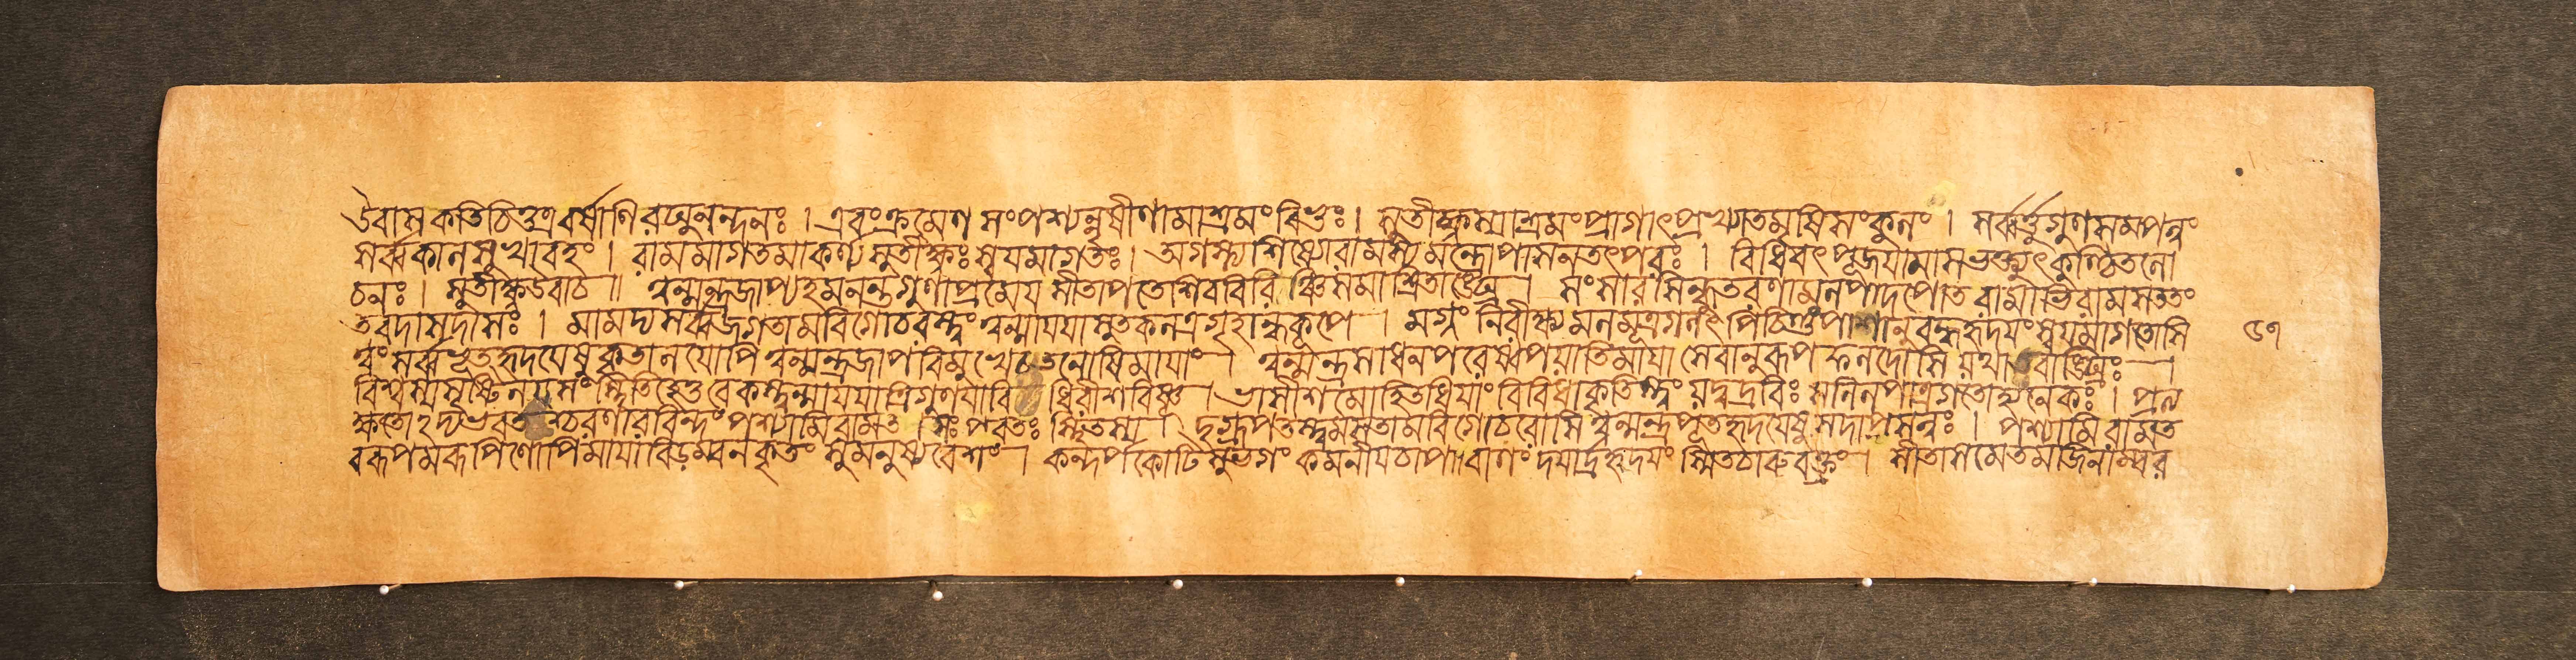 উবাস কতিচিত্তত্র বর্ষাণি রঘুনন্দনঃ । এবং ক্রমেণ সংপশ্যন্নৃষীণামাশ্রমং ৰিভুঃ । সুতীক্ষ্ণস্যাশ্রমং প্রাগাৎপ্রখ্যাতমৃষিসংকুলং । সর্ব্বর্ত্তুগুণসমপন্নং
সর্ব্বকালসুখাবহং । ৰামমাগতমাকর্ণ্য সুতীক্ষ্ণঃ স্বয়মাগতঃ । অগস্ত্যশিষ্যোৰামস্য মন্ত্রোপাসনতৎপৰঃ । বিধিবৎ পূজয়ামাসভক্ত্যুৎকুণ্ঠিতলো
চনঃ । সুতীক্ষ্ণউবাচ ॥ ত্বন্মন্ত্রজাপ্যহমনন্তগুণাপ্রমেয় সীতাপতেশিববিৰিঞ্চিসমাশ্রিতাঙ্ঘ্রে । সংসাৰসিন্ধুতৰণামলপাদপোত ৰামাভিৰামসততং
তবদাসদাসঃ । মামদ্যসর্ব্বজগতামবিগোচৰস্ত্বং ত্বন্মায়য়াসুতকলত্রগৃহান্ধকূপে । মগ্নং নিৰীক্ষ্যমলমূত্রগলৎপিণ্ড পাশানুবদ্ধহৃদয়ং স্বয়মাগতোসি ৫৭
ত্বং সর্ব্বভূতহৃদয়েষুকৃতালয়োপি ত্বন্মন্ত্রজাপবিমুখেষুতনোষিমায়াং । ত্বন্মন্ত্রসাধনপৰেষ্বপয়াতিমায়া সেবানুৰূপফলদোসি যথা
বিশ্বস্যসৃষ্টিলয়সংস্থিতিহেতুৰেকস্ত্বন্মায়য়াত্রিগুণয়াবিধিৰীশবিষ্ণু । ভাসীশমোহিতধিয়াংবিবিধাকৃতিস্ত্বং যদ্বদ্ৰবিঃ সলিলপাত্রগতোহ্যনেকঃ । প্রত্য
ক্ষতোঽদ্যভবতশ্চৰণাৰবিন্দং পশ্যামিৰামত পৰতঃ স্থিতস্য । দৃগ্ৰূপতস্ত্বমসতামবিগোচৰোসি ত্বন্মন্ত্রপূতহৃদয়েষুসদাপ্রসন্নঃ । পশ্যামিৰামত
বৰূপমৰূপিণোপিমায়াবিড়ম্বনকৃতং সুমনুষ্যবেশং । কন্দর্পকোটিসুভগং কমনীয়চাপবাণং দয়ার্দ্রহৃদয়ং স্মিতচাৰুবক্ত্রং । সীতাসমেতমজিনাম্বৰ